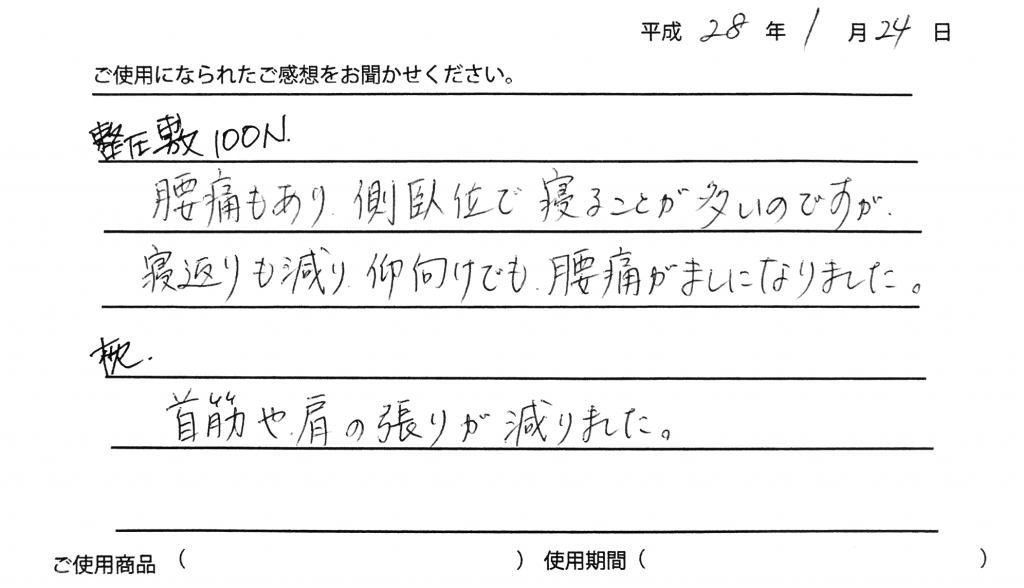 平成 28 年 1 月 24 日
ご使用になられたご感想をお聞かせください。
整圧敷100N.
腰痛もあり、側臥位で寝ることが多いのですが、
寝返りも減り、仰向けでも、腰痛がましになりました。
枕.
首筋や肩の張りが減りました。
ご使用商品 ( ) 使用期間 ( )